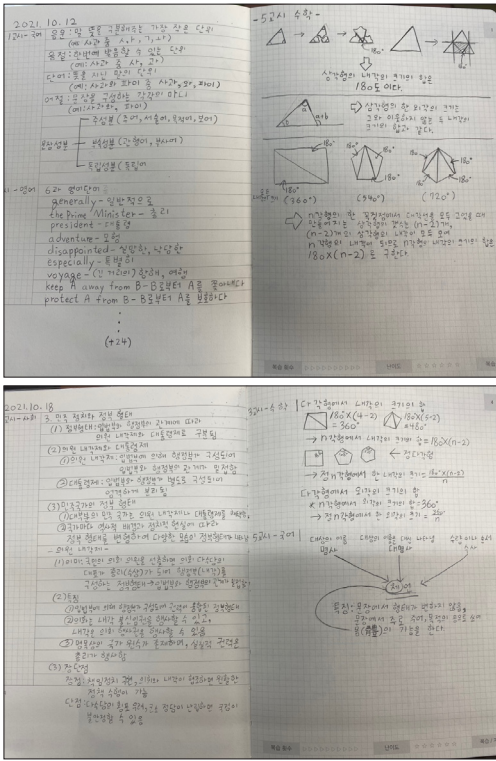 2021.10.12
1교시-국어 음운: 말 뜻을 구별해주는 가장 작은 단위
(예: 사과 중 ㅅ,ㅏ,ㄱ,ㅘ)
음절: 한번에 발음할 수 있는 단위
(예: 사과 중 사, 과)
단어: 뜻을 지닌 말의 단위
(예: 사과와 파이 중 사과, 와, 파이)
어절: 문장을 구성하는 각각의 마디
(예: 사과와, 파이)
주성분 (주어, 서술어, 목적어, 보어)
문장성분 부속성분 (관형어, 부사어)
독립성분 (독립어
교시-영어 6과 영어단어
generally - 일반적으로
the Prime Minister - 총리
president - 대통령
adventure - 모험
disappointed - 실망한, 낙담한
especially - 특별히
voyage - (긴 거리의) 항해, 여행
keep A away from B - B로부터 A를
protect A from B - B로부터 A를 보호하다
(+24)
-5교시 수학-
180°
삼각형의 내각의 크기의 합은
180도이다.
a
b
a+b
삼각형의 한 외각의 크기는
그와 이웃하지 않는 두 내각의
크기의 합과 같다.
180°
180°
180°
180°
180°
(360°) (540°) (720°)
n각형의 한 꼭짓점에서 대각선을 모두 그었을 때
만들어지는 삼각형의 갯수는 (n-2)개,
(n-2)개의 삼각형의 내각이 모두 모여
n각형의 내각이 되므로 n각형의 내각의 크기의 합은
180×(n-2)로 구한다
2021.10.18
교시-사회 3. 민주 정치와 정부 형태
(1) 정부형태: 입법부와 행정부의 관계에 따라
의원 내각제와 대통령제로 구분됨
(2) 의원 내각제와 대통령제
①의원 내각제: 입법부에 의해 행정부가 구성되어
입법부와 행정부의 관계가 밀접함
②대통령제: 입법부와 행정부가 별도로 구성되어
엄격하게 분리됨
(3) 민주국가의 정부 형태
①대부분의 민주 국가는 의원 내각제나 대통령제를
②국가마다 역사적 배경과 정치적 현실에 따라
정부 형태를 변형하여 다양한 모습의 정부형태가
-의원 내각제-
(1) 의미: 국민이 의회 의원을 선출하면 의회 다수당의
대표가 총리(수상)가 되어 행정부(내각)를
구성하는 정부형태
(2) 특징
①입법부에 의해 행정부가 구성되어 권력이 융합된 정부형태
②의회는 내각 불신임권을 행사할 수 있고,
내각은 의회 해산권을 행사할 수 있음
③명목상의 국가 원수가 존재하며, 실질적 권한은
총리가 행사함
(3) 장단점
장점: 책임정치 구현, 의회와 내각이 협조하면 원활한
정책 수행이 가능
단점: 다수당의 횡포 우려, 군소 정당이 난립하면 국정이
불안정할 수 있음
3교시-수학 다각형에서 내각의 크기의 합
180°×(4-2)
=360°
180°×(5-2)
→ n각형에서 내각의 크기의 합 = 180×(n-2)
정다각형
→ 정n각형에서 한 내각의 크기 = 180°×(n-2)/n
다각형에서 외각의 크기의 합
* n각형에서 외각의 크기의 합 = 360°
→ 정n각형에서 한 외각의 크기 = 360°/n
5교시-국어 대상의 이름 대상의 이름을 대신 나타냄 수량이나 순서
명사 대명사 수사
체언
특징: 문장에서 형태가 변하지 않음,
문장에서 주로 주어, 목적어
의 기능을 한다.
복습 횟수 난이도